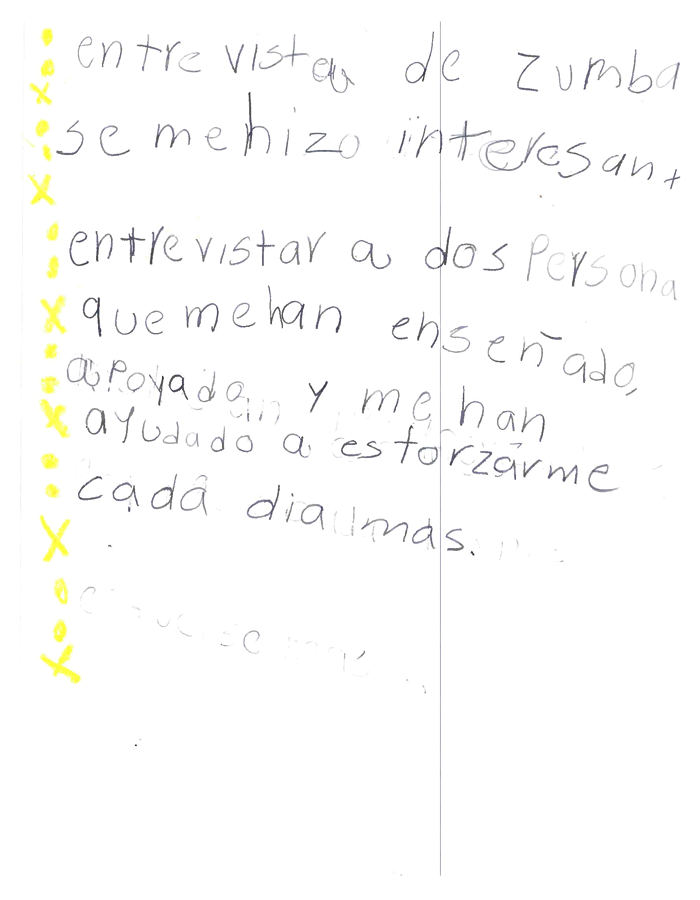 entrevista de zumba
se me hizo interesant
entrevistar a dos persona
que me han enseñado,
apoyada, y me han
ayudado a esforzarme
cada dia mas.